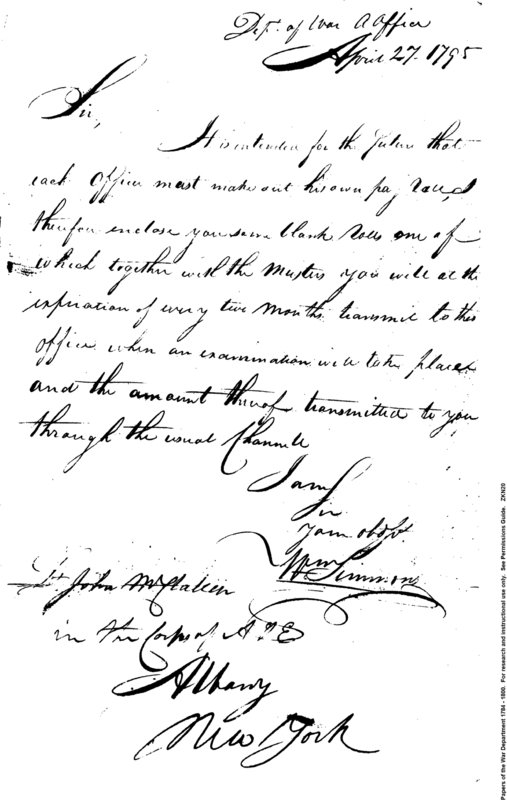 Dept. of War A Office
April 27. 1795
Sir,
It is intended for the future that
each Officer must make out his own pay Roll, I
therefore enclose you some blank Rolls one of
which together with the Musters you will at the
expiration of every two Months transmit to this
office when an examination will take place
and the amount thereof transmitted to you
through the usual Channell
I am
Sir
Your obdt
Wm Simmons
Lt John McClallen
in the Corps of A & E
Albany
New York
Papers of the War Department 1784 - 1800. For research and instructional use only. See Permissions Guide. ZKN20